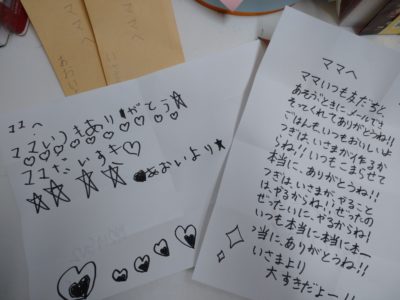 ママへ
ママへ
ママへ
ママいつもありがとう☆
♡♡♡♡♡♡♡♡♡
ママだいすき♡
☆☆☆☆ あおいより★
ママへ
ママいつも友だちと、
あそぶときにメールでさ
そってくれてありがとうね!!
ごはん、いつもおいしいよ
つぎは、いさまが作るか
らね!!いつもこまらせて
本当に、ありがとうね!!
つぎは、いさまがやること
は、やるからね!!ぜったの
ぜったいに、やるからね!
いつも本当に本当に本ー
当に、ありがとうね!!
いさまより
大すきだよー!!